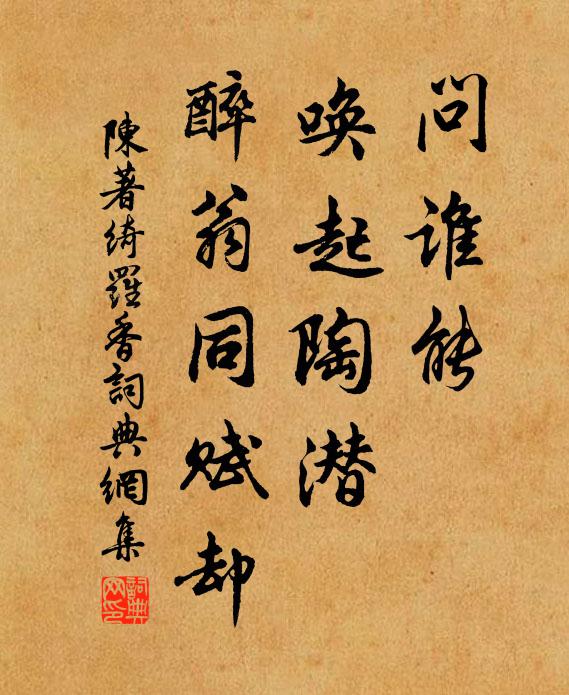 问谁能
唤起陶潜
醉翁同赋却
陳著綺羅香詞典網集
詞典网印